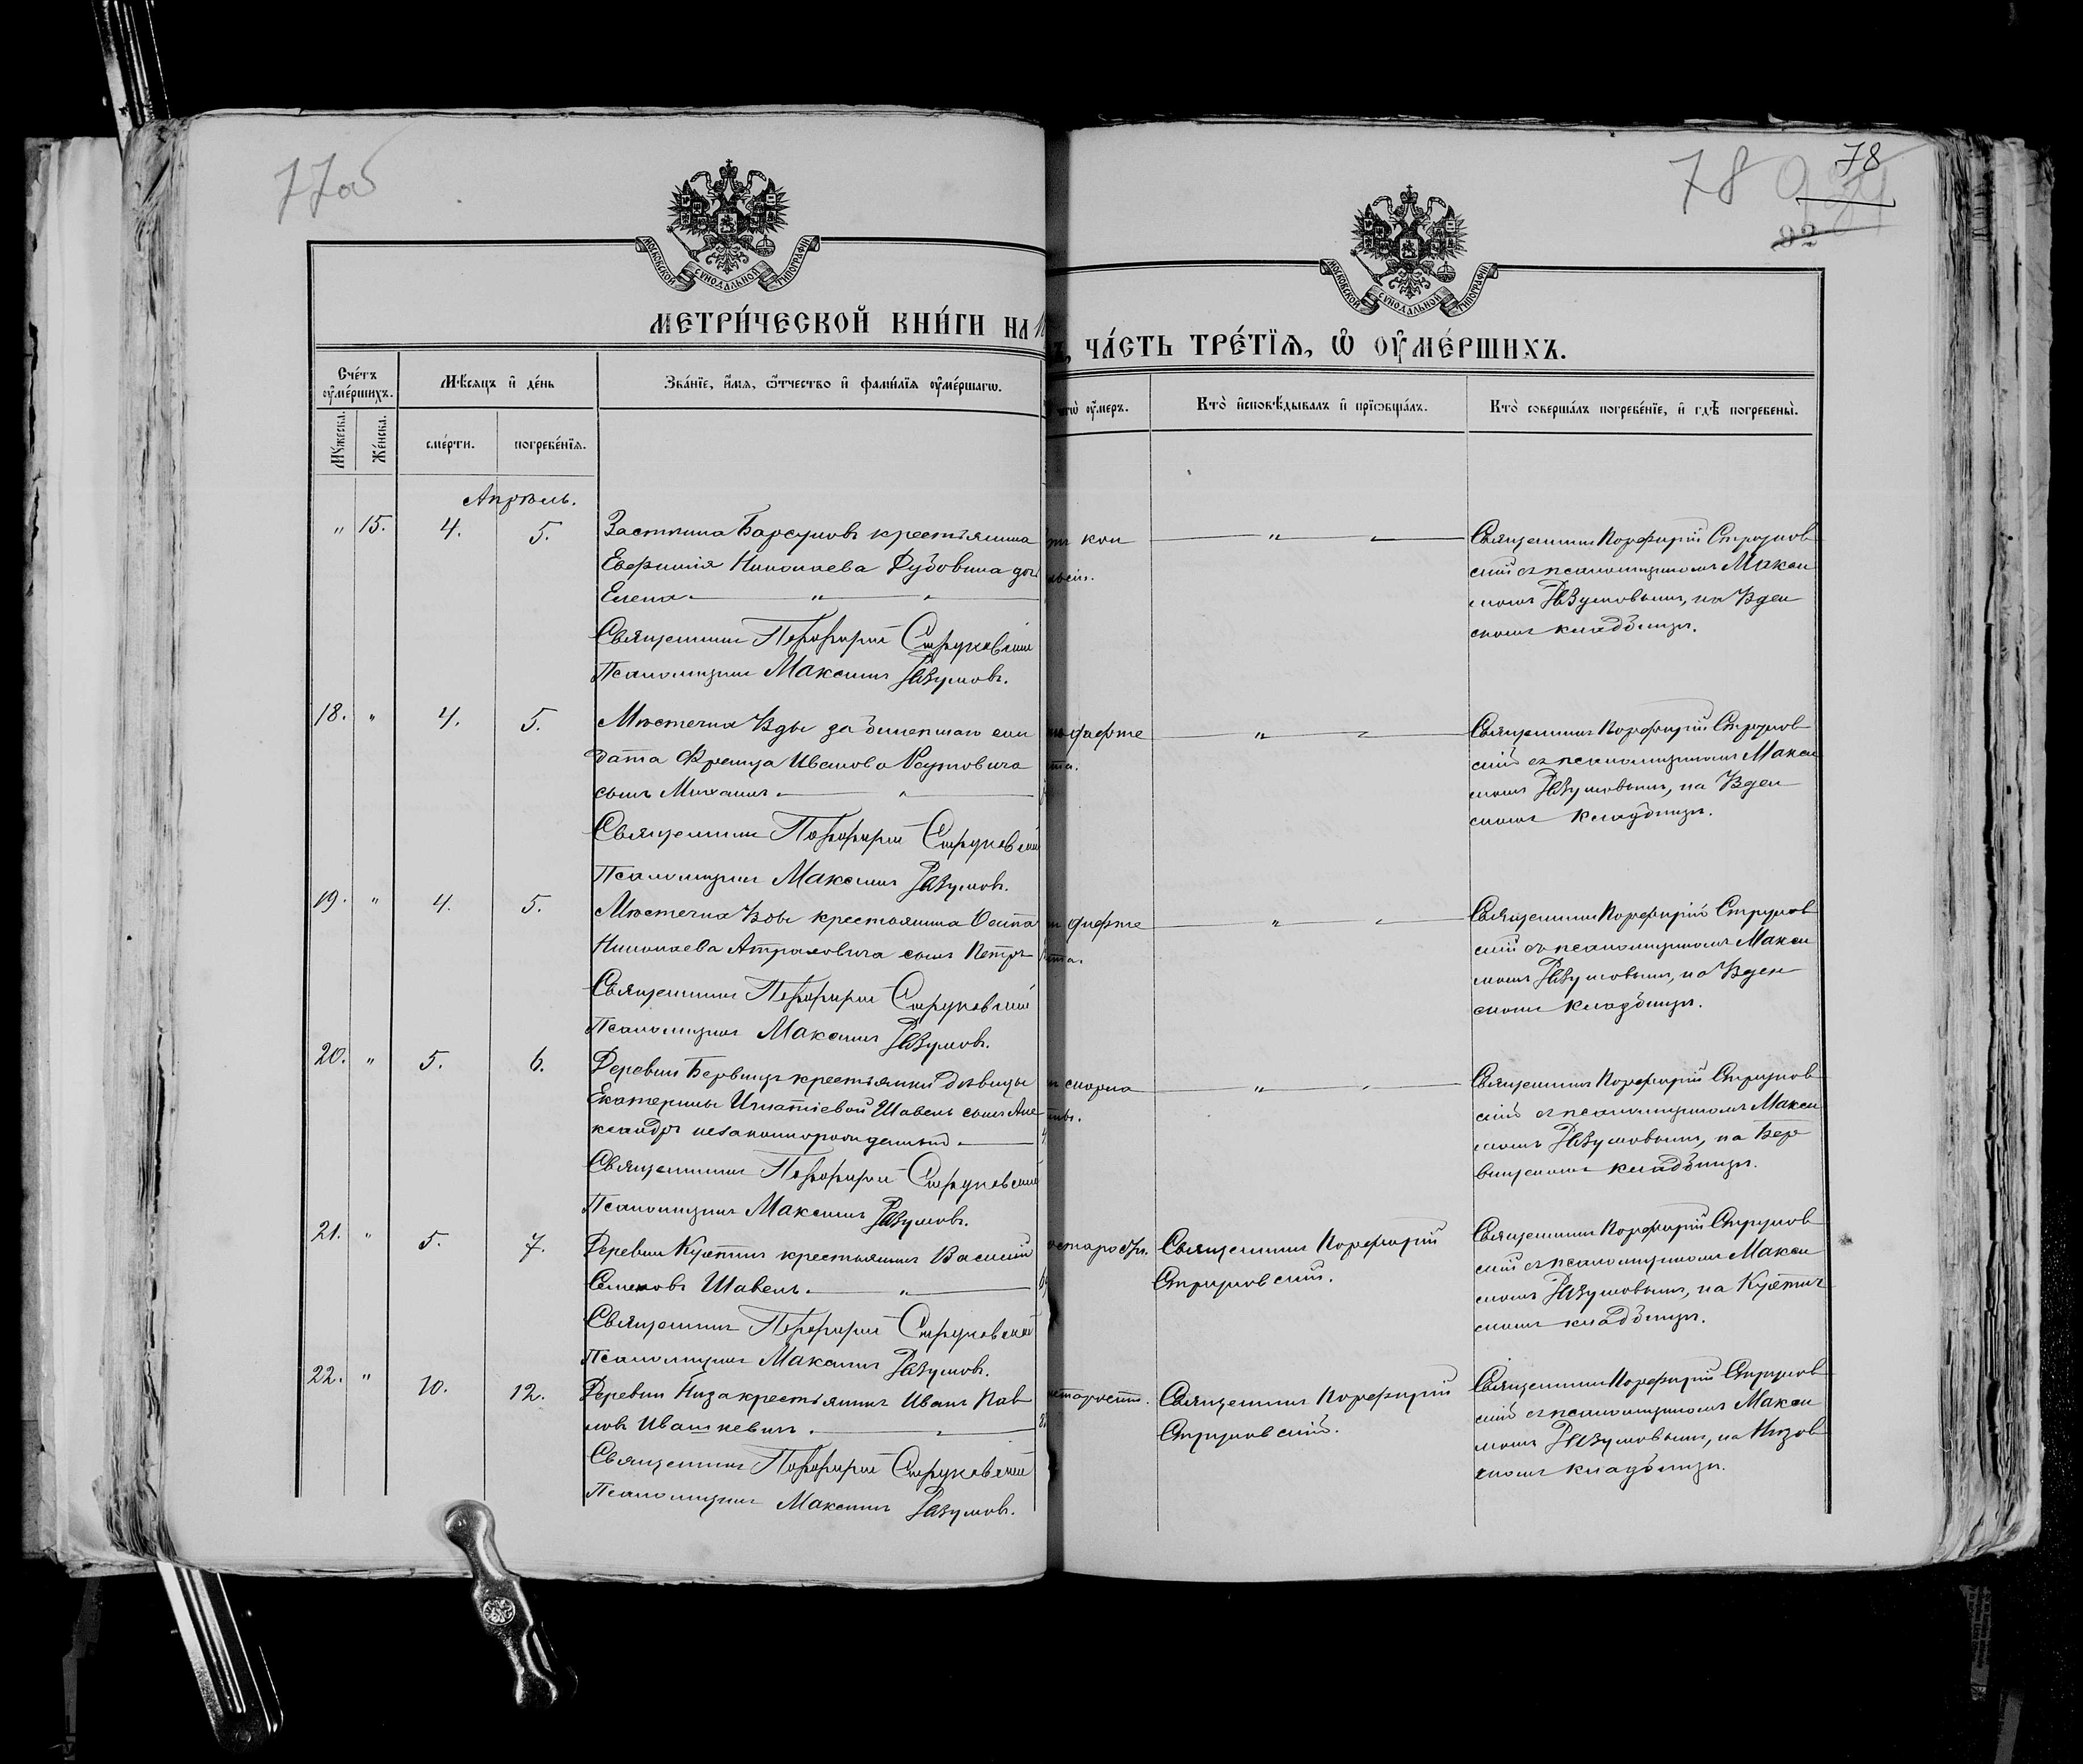 77об
78
78
92
МОСКОВСКОЙ СѴНОДАЛЬНОЙ ТИПОГРАФІИ
МОСКОВСКОЙ СѴНОДАЛЬНОЙ ТИПОГРАФІИ
МЕТРИ́ЧЕСКОЙ КНИ́ГИ НА
Ъ, ЧА́СТЬ ТРЕ́ТІѦ, Ѡ ОУМЕ́РШИХЪ.
Сче́тъ оуме́ршихъ.
Мѣсѧцъ и де́нь
Зва́нїе, и́мѧ, ѻ҆́тчество и фами́лїѧ оуме́ршагѡ.
чегѡ оу́меръ.
Кто̀ и҆сповѣ́дывалъ и прїѡбща́лъ.
Кто̀ соверша́лъ погребе́нїе, и гдѣ̀ погребены̀.
Мꙋ́жеска.
Же́нска.
сме́рти.
погребе́нїѧ.
Апрѣль.
" 15. 4. 5.
Застѣнка Барсуковъ крестьянина
Евфимія Николаева Дубовика дочь
Елена " "
Священникъ Порфирій Струковскій
Псаломщикъ Максимъ Разумовъ.
кок
" "
Священникъ Порфирій Струков
скій съ псаломщикомъ Макси
момъ Разумовымъ, на Узден
скомъ кладбищѣ.
18. " 4. 5.
Мѣстечка Узды за билетнаго сол
дата Франца Иванова
сынъ Михаилъ "
Священникъ Порфирій Струковскій
Псаломщикъ Максимъ Разумовъ.
дифте
" "
Священникъ Порфирій Струков
скій съ псаломщикомъ Макси
момъ Разумовымъ, на Узден
скомъ кладбищѣ.
19. " 4. 5.
Мѣстечка Узды крестьянина Осипа
Николаева Атраховича сынъ Петръ
Священникъ Порфирій Струковскій
Псаломщикъ Максимъ Разумовъ.
дифте
" "
Священникъ Порфирій Струков
скій съ псаломщикомъ Макси
момъ Разумовымъ, на Узден
скомъ кладбищѣ.
20. " 5. 6.
Деревни Бервищъ крестьянки дѣвицы
Екатерины Игнатіевой Шавель сынъ Але
ксандръ незаконнорожденный
Священникъ Порфирій Струковскій
Псаломщикъ Максимъ Разумовъ.
скарла
тины.
" "
Священникъ Порфирій Струков
скій съ псаломщикомъ Макси
момъ Разумовымъ, на Бер
вищскомъ кладбищѣ.
21. " 5. 7.
Деревни Кухтичъ крестьянинъ Василій
Семеновъ Шавель. "
Священникъ Порфирій Струковскій
Псаломщикъ Максимъ Разумовъ.
Священникъ Порфирій
Струковскій.
Священникъ Порфирій Струков
скій съ псаломщикомъ Макси
момъ Разумовымъ, на Кухтич
скомъ кладбищѣ.
22. " 10. 12.
Деревни Низа крестьянинъ Иванъ Пав
ловъ Ивашкевичъ. "
Священникъ Порфирій Струковскій
Псаломщикъ Максимъ Разумовъ.
старости.
Священникъ Порфирій
Струковскій.
Священникъ Порфирій Струков
скій съ псаломщикомъ Макси
момъ Разумовымъ, на Низов
скомъ кладбищѣ.